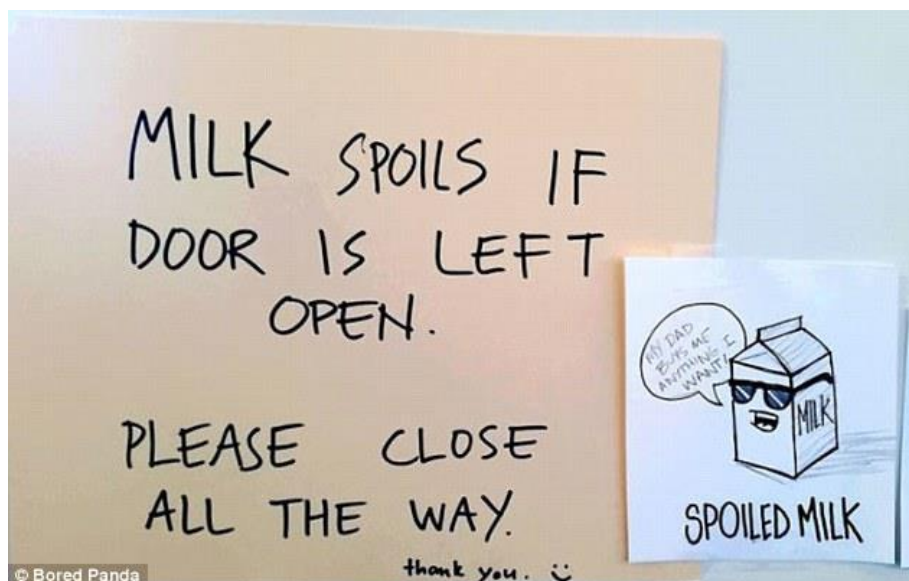 MILK SPOILS IF
DOOR IS LEFT
OPEN.
PLEASE CLOSE
ALL THE WAY.
thank you. :)
MY DAD
BUYS ME
ANYTHING I
WANT!
MILK
SPOILED MILK
© Bored Panda